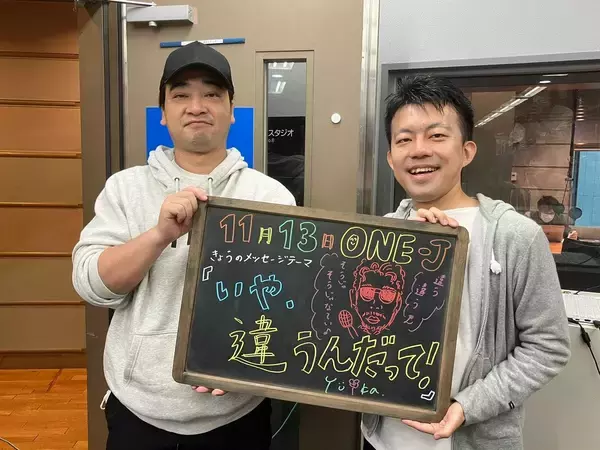 スタジオ
11月13日 ONE-J
きょうのメッセージテーマ
『いや、
違うんだって!』
違う
違う
そうじゃないよ
Yüka.